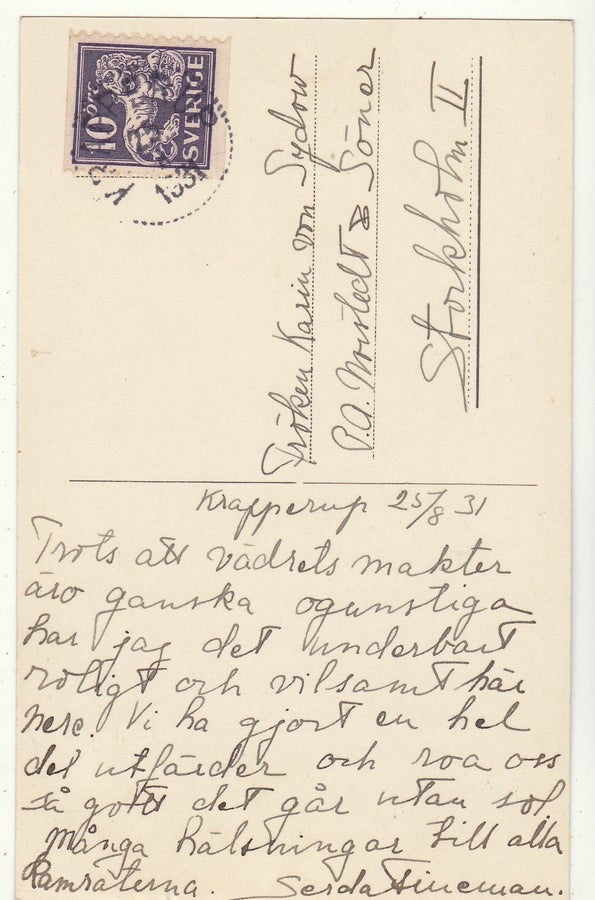 10 ÖRE
SVERIGE
1931
Fröken Karin von Sydow
P.A. Norstedt & Söner
Stockholm II
Krapperup 25/8 31
Trots att vädrets makter
äro ganska ogunstiga
har jag det underbart
roligt och vilsamt här
nere. Vi ha gjort en hel
del utfärder och roa oss
så gott det går utan sol
Många hälsningar till alla
Kamraterna. Gerda Fineman.